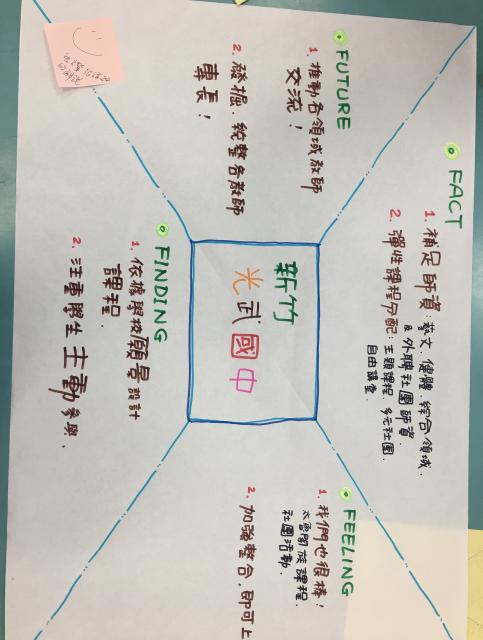 新竹
光武國中
FACT
1. 補足師資：藝文、健體、綜合領域、
及外聘社團師資.
2. 彈性課程分配：主題課程、多元社團、
自由講堂.
FEELING
1. 我們也很棒！
太魯閣族課程.
社團活動.
2. 加強整合，即可上
FINDING
1. 依據學校願景設計
課程.
2. 注意學生主動參與.
FUTURE
1. 推動各領域教師
交流！
2. 發掘、統整各教師
專長！